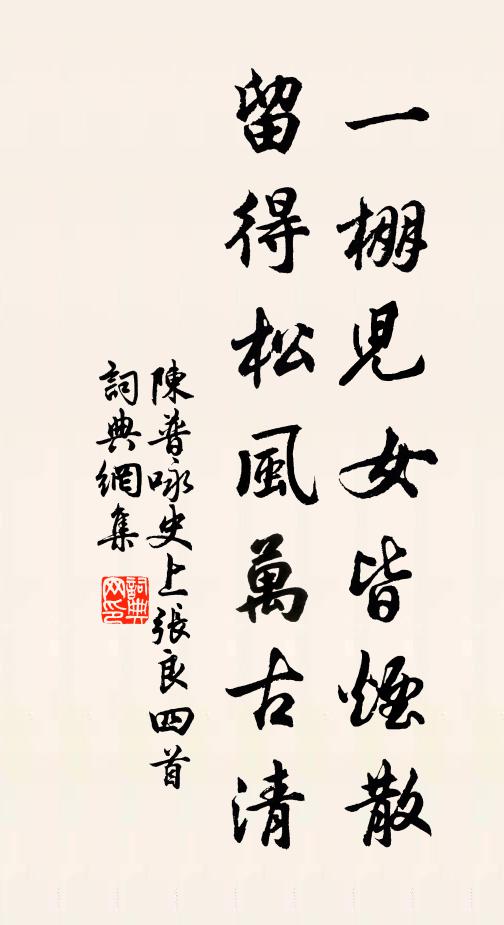 一棚兒女皆煙散
留得松風萬古清
陳普詠史上張良四首
詞典網集
詞典
网印